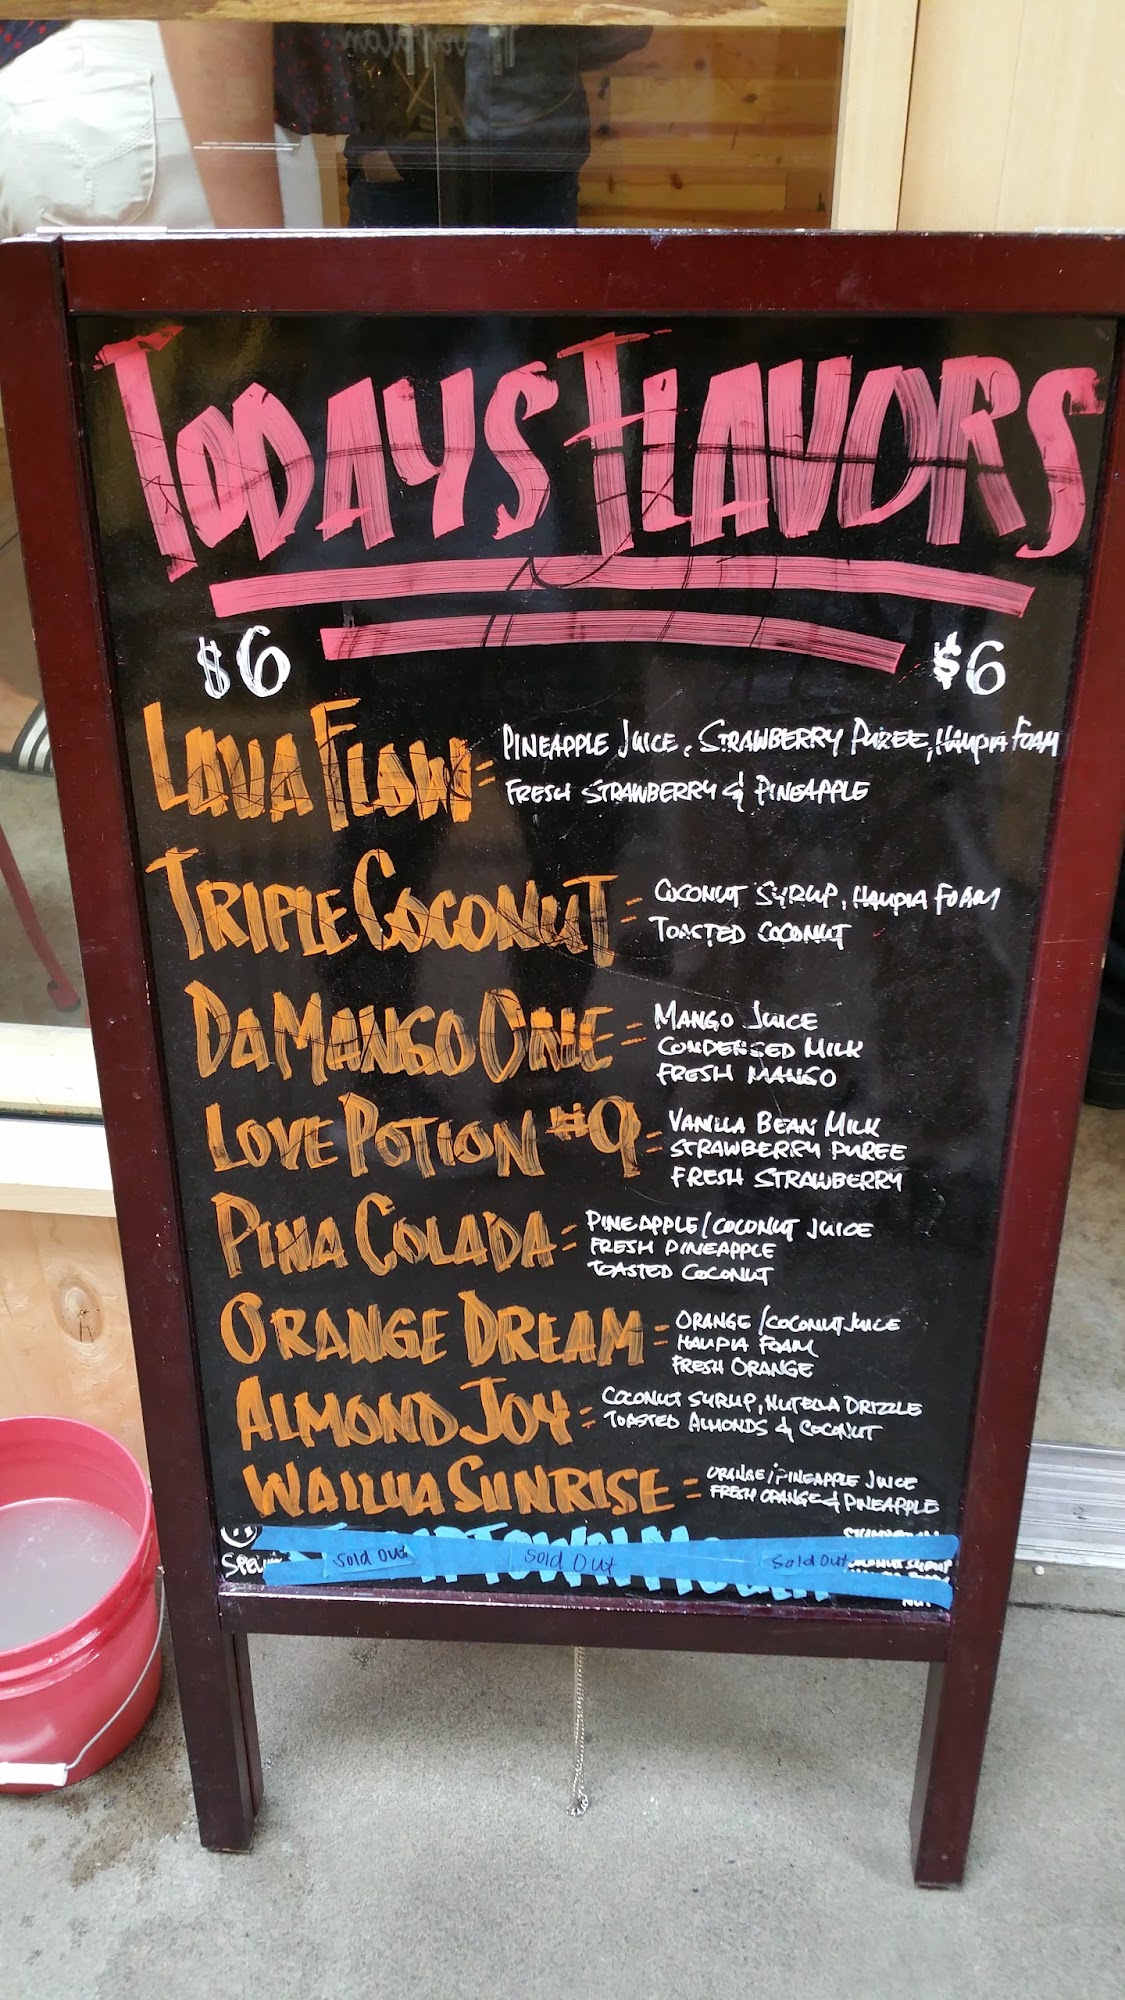 TODAYS FLAVORS
$6 $6
LAVA FLOW = PINEAPPLE JUICE, STRAWBERRY PUREE, HAUPIA FOAM
FRESH STRAWBERRY & PINEAPPLE
TRIPLE COCONUT = COCONUT SYRUP, HAUPIA FOAM
TOASTED COCONUT
DA MANGO ONE = MANGO JUICE
CONDENSED MILK
FRESH MANGO
LOVE POTION #9 = VANILLA BEAN MILK
STRAWBERRY PUREE
FRESH STRAWBERRY
PINA COLADA = PINEAPPLE/COCONUT JUICE
FRESH PINEAPPLE
TOASTED COCONUT
ORANGE DREAM = ORANGE/COCONUT JUICE
HAUPIA FOAM
FRESH ORANGE
ALMOND JOY = COCONUT SYRUP, NUTELLA DRIZZLE
TOASTED ALMONDS & COCONUT
WAILUA SUNRISE = ORANGE/PINEAPPLE JUICE
FRESH ORANGE & PINEAPPLE
Sold Out Sold Out Sold Out